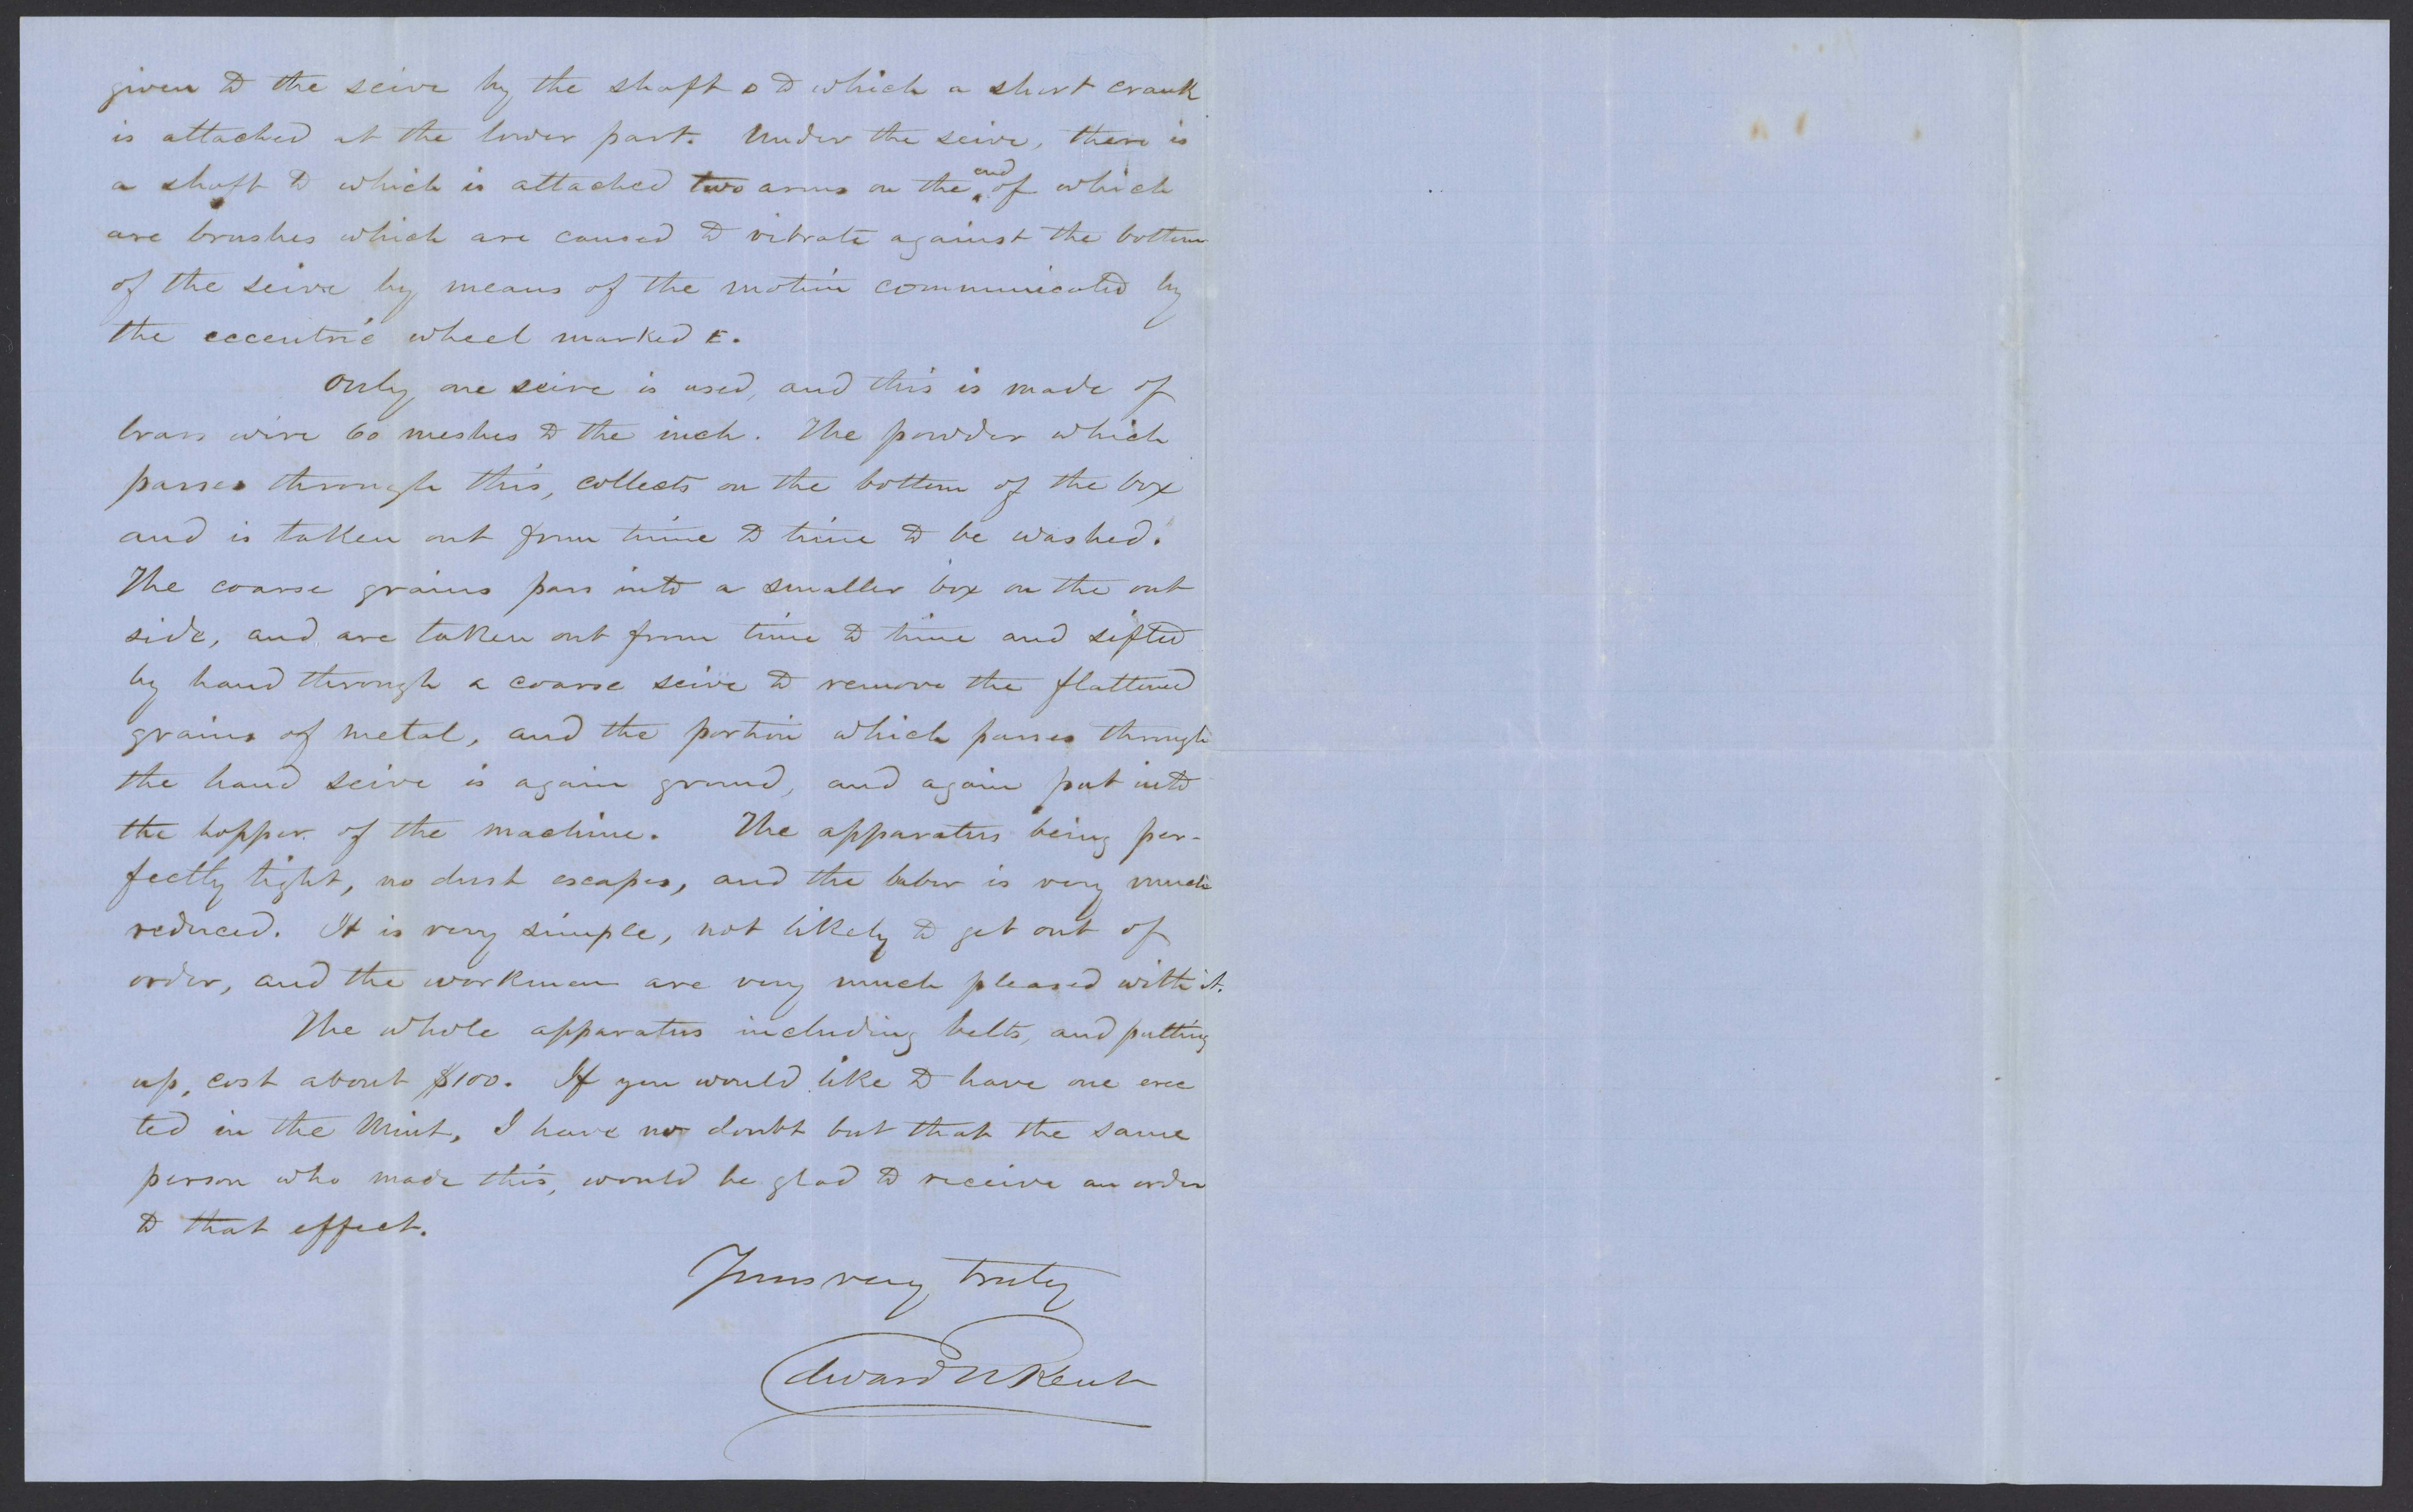 given to the seive by the shaft D to which a short crank
is attached at the lower part. Under the seive, there is
a shaft to which is attached two arms on the end of which
are brushes which are caused to vibrate against the bottom
of the seive by means of the motion communicated by
the eccentric wheel marked E.
Only one seive is used, and this is made of
brass wire 60 meshes to the inch. The powder which
passes through this, collects on the bottom of the box
and is taken out from time to time to be washed.
The coarse grains pass into a smaller box on the out
side, and are taken out from time to time and sifted
by hand through a coarse seive to remove the flattened
grains of metal, and the portion which passes through
the hand seive is again ground, and again put into
the hopper of the machine. The apparatus being per-
fectly tight, no dust escapes, and the labor is very much
reduced. It is very simple, not likely to get out of
order, and the workmen are very much pleased with it.
The whole apparatus including belts, and putting
up, cost about $100. If you would like to have one erec
ted in the Mint, I have no doubt but that the same
person who made this, would be glad to receive an order
to that effect.
Yours very truly
Edward N Kent